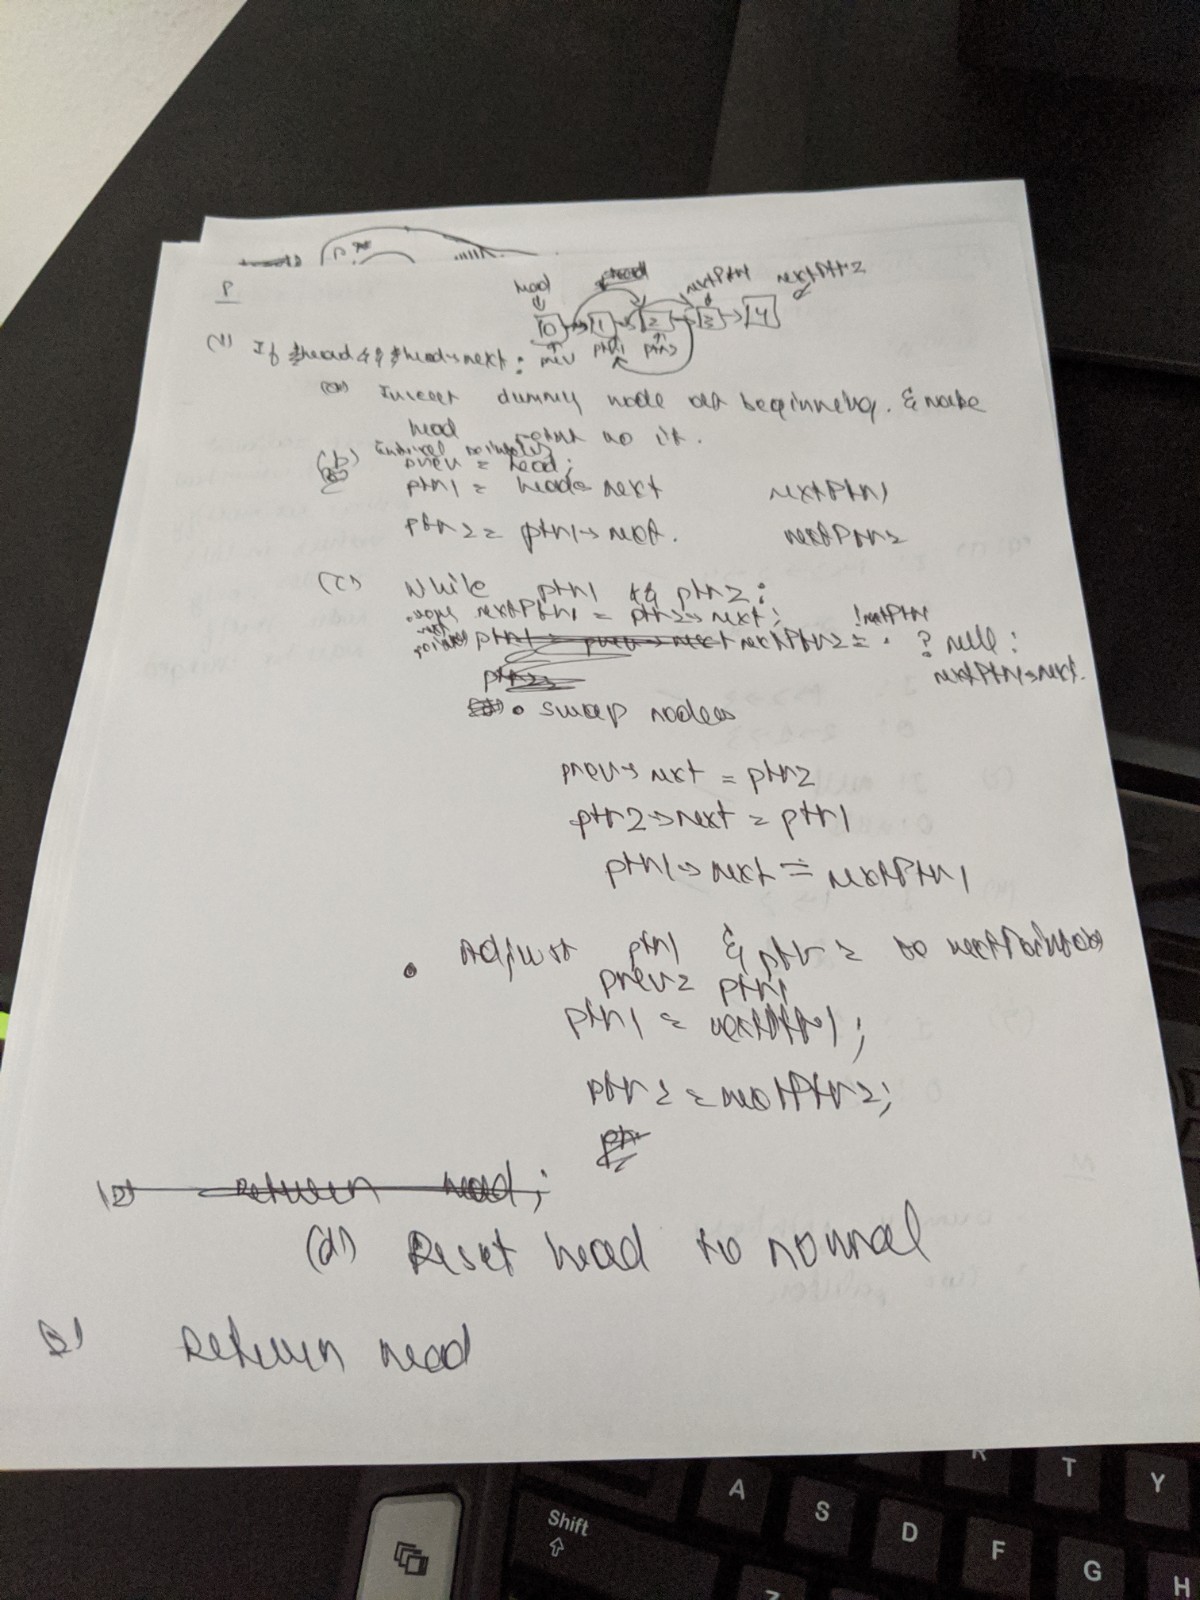 P
head
nextPtr1 nextPtr2
0 1 2 3 4
(1) If head && head→next : prev ptr1 ptr2
(a) Insert dummy node at beginning. & make
head point to it.
(b) pointers
prev = head;
ptr1 = head→next nextPtr1
ptr2 = ptr1→next. nextPtr2
(c) While ptr1 && ptr2 :
nextPtr1 = ptr2→next; !nextPtr1
next pointers nextPtr2 = ? null :
nextPtr1→next.
• swap nodes
prev→next = ptr2
ptr2→next = ptr1
ptr1→next = nextPtr1
• Adjust ptr1 & ptr2 to nextPointers
prev = ptr1
ptr1 = nextPtr1;
ptr2 = nextPtr2;
(2) Return head;
(d) Reset head to normal
2) Return head
Shift
A S D F G H
R T Y
Z